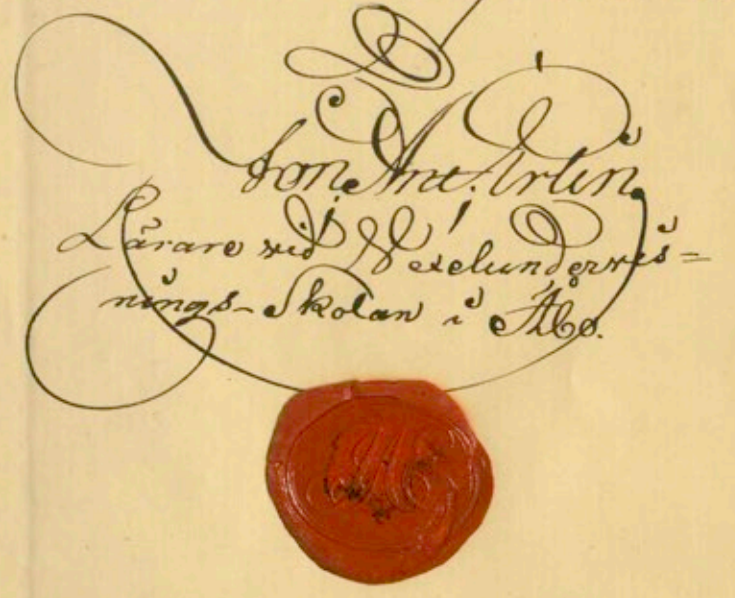 Jon Ant. Arlin,
Lärare vid Wexelundervis=
nings-Skolan i Åbo.